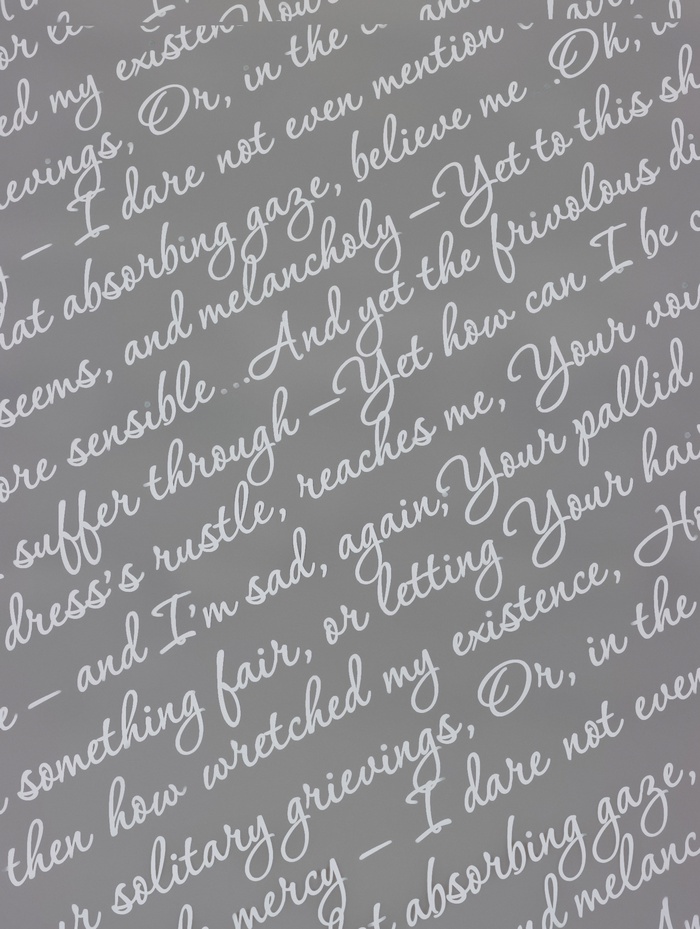 ed my existen
ievings, Or, in the
— I dare not even mention
hat absorbing gaze, believe me .Oh,
seems, and melancholy —Yet to this sh
ore sensible ...And yet the frivolous di
suffer through —Yet how can I be
dress's rustle, reaches me, Your voi
e — and I'm sad, again, Your pallid
something fair, or letting Your hai
then how wretched my existence, Ho
ur solitary grievings, Or, in the
mercy — I dare not even
at absorbing gaze,
nd melanc